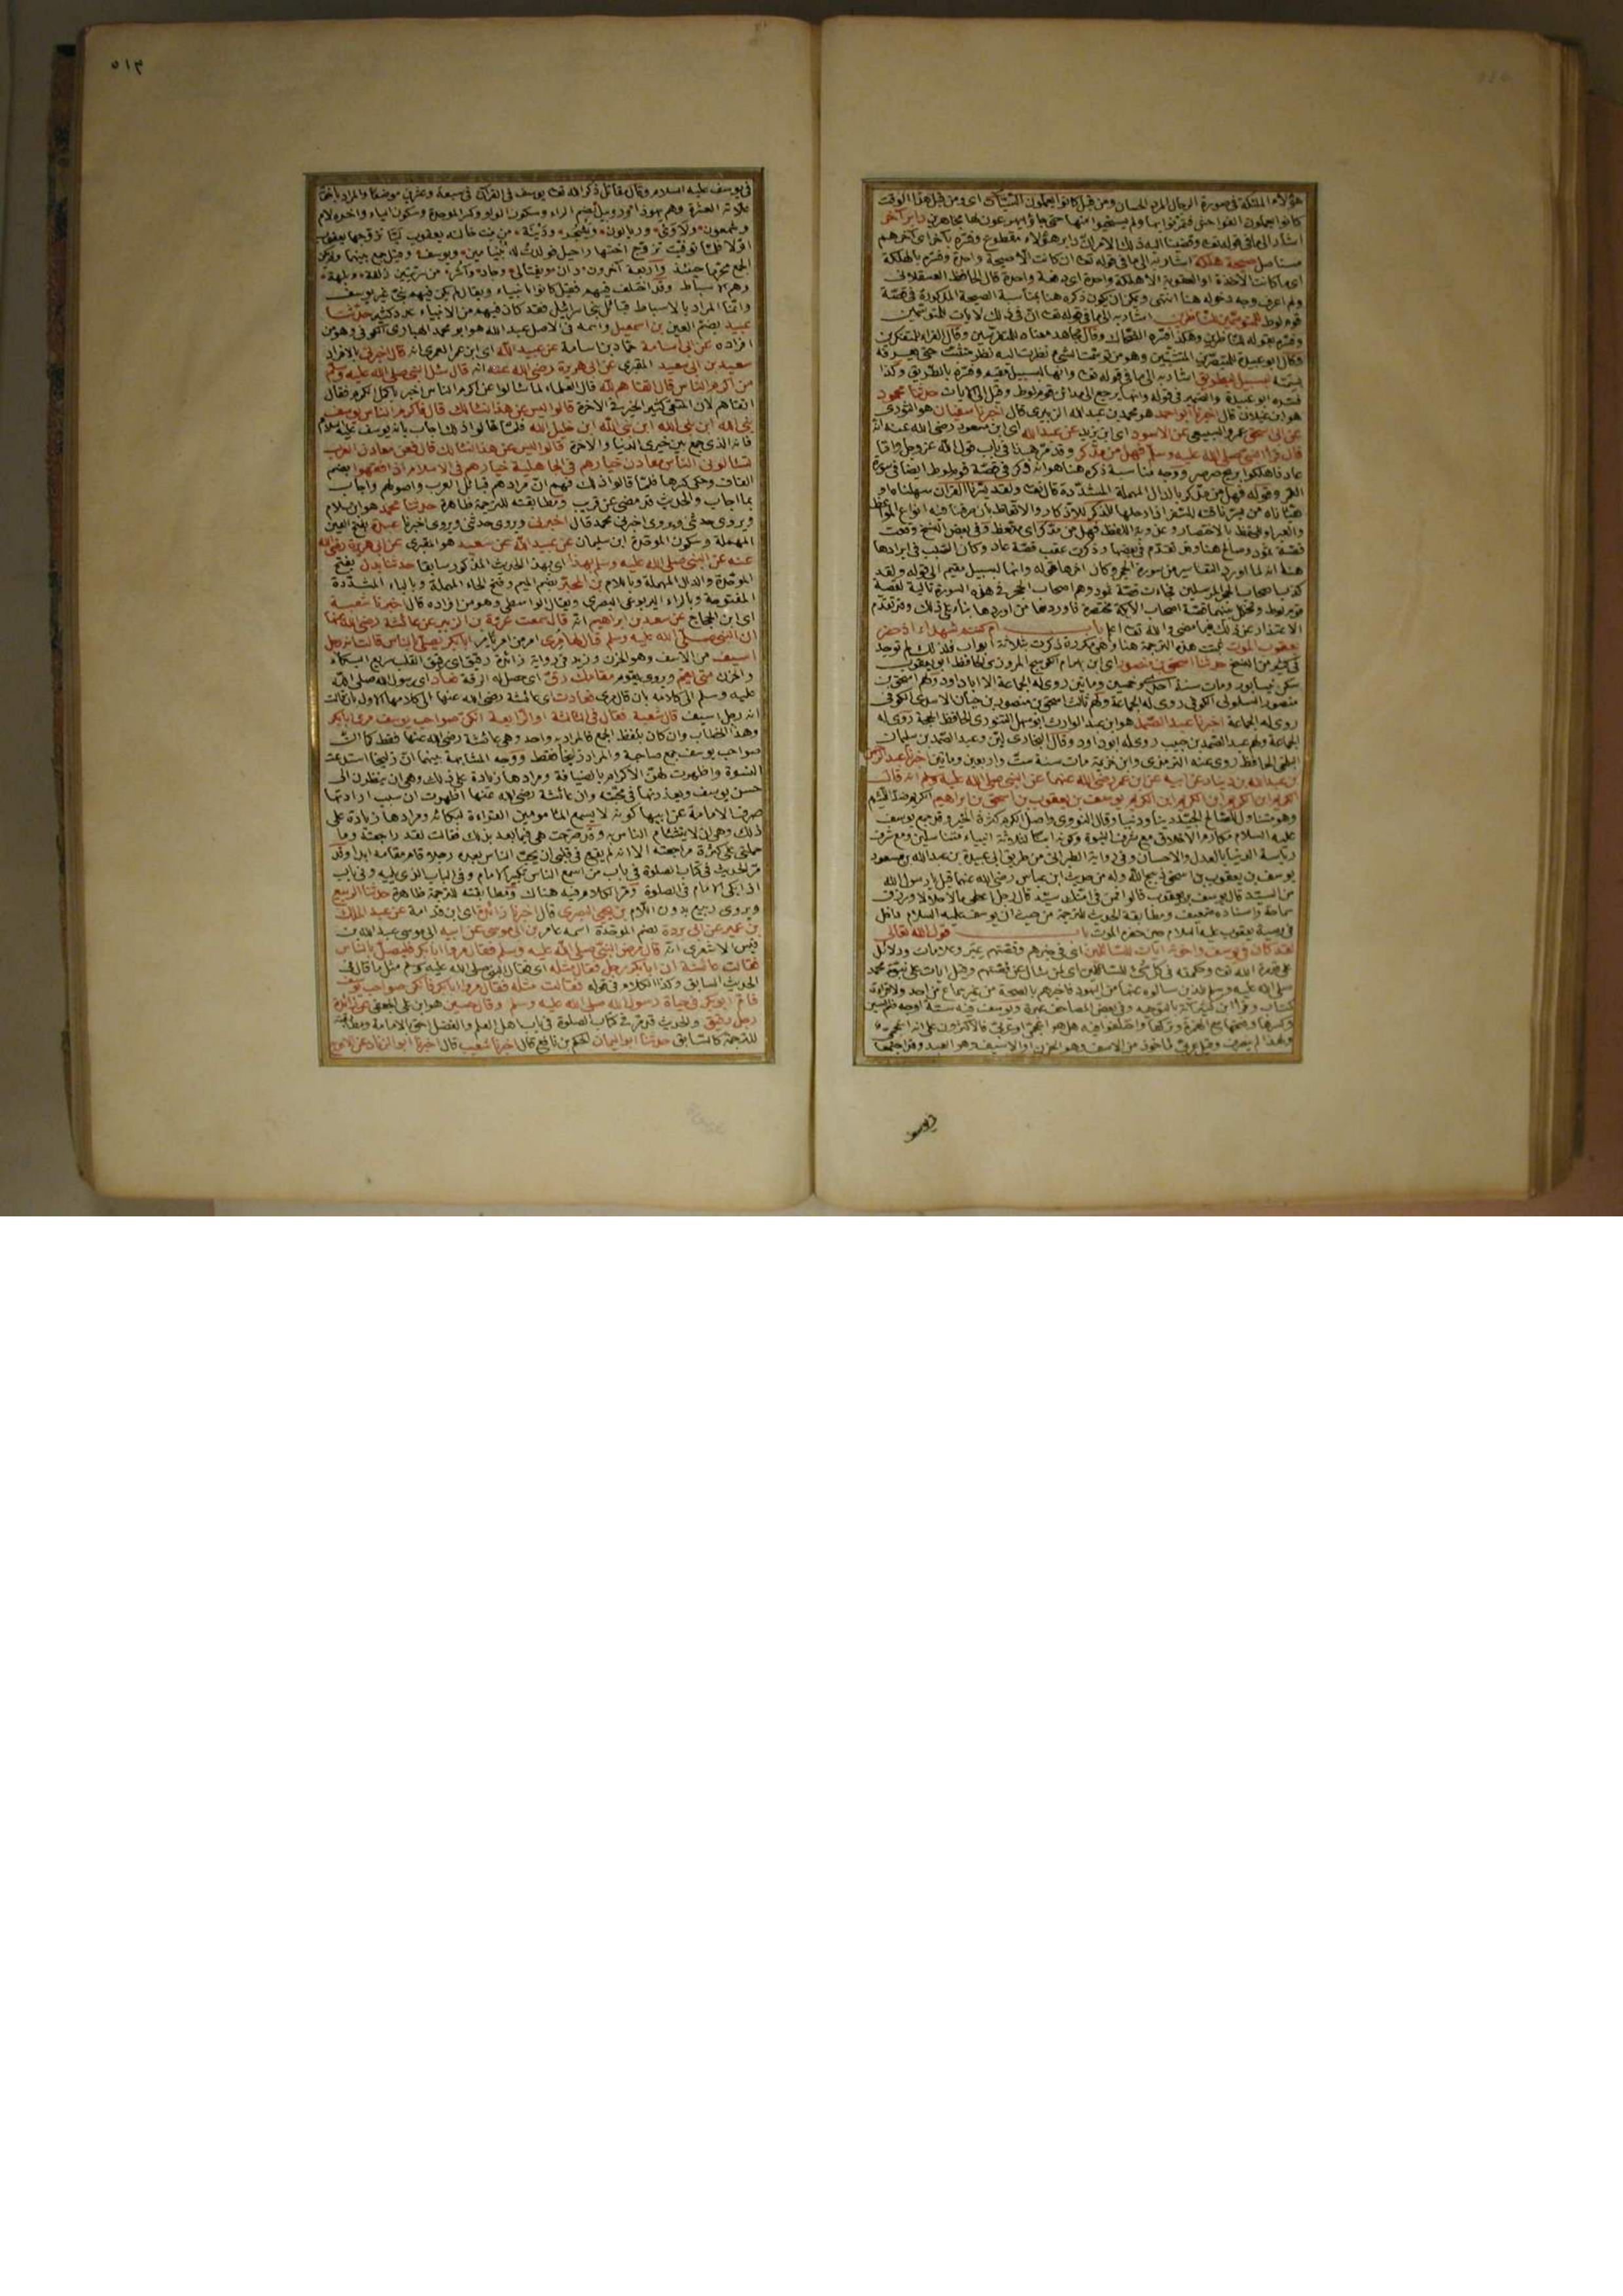 هؤلاء الملئكة في صورة الرجال المرد الحسان ومن قبل كانوا يعملون السيئات اى ومن قبل هذا الوقت
كانوا يعملون الفواحش فمرنوا بها ولم يستحيوا منها حتى جاؤا يهرعون لها مجاهرين دابر آخر
اشار الى ما في قوله تعا وقضينا اليه ذلك الامر انّ دابر هؤلاء مقطوع وفسّره بآخر اى آخرهم
مستاصل صيحة هلكة اشار به الى ما في قوله تعا ان كانت الا صيحة واحدة وفسّره بالهلكة
اى ما كانت الاخذة او العقوبة الا هلكة واحدة اى صيحة واحدة قال الحافظ العسقلانى
ولم اعرف وجه دخوله هنا انتهى ويمكن ان يكون ذكره هنا بمناسبة الصيحة المذكورة في قصّة
قوم لوط للمتوسّمين للناظرين اشار به الى ما في قوله تعا انّ في ذلك لايات للمتوسّمين
وفسّره بقوله للناظرين وهكذا فسّره الضحّاك وقال مجاهد معناه للمتفرّسين وقال الفراء للمتفكرين
وقال ابو عبيدة للمتبصّرين المتثبّتين وهو من توسّمت الشئ نظرت اليه نظر متثبّت حتى يعرف
سمته لبسبيل لبطريق اشار به الى ما في قوله تعا وانها لبسبيل مقيم وفسّره بالطريق وكذا
فسّره ابو عبيدة والضمير في قوله وانها يرجع الى مدائن قوم لوط وقيل الى الآيات حدثنا محمود
هو ابن غيلان قال اخبرنا ابو احمد هو محمد بن عبد الله الزبيرى قال اخبرنا سفيان هو الثورى
عن ابى اسحق عمرو السبيعى عن الاسود اى ابن يزيد عن عبد الله اى ابن مسعود رضى الله عنه انّه
قال قرأ النبى صلى الله عليه وسلّم فهل من مدّكر وقد مرّ هذا في باب قول الله عزّ وجلّ وامّا
عاد فاهلكوا بريح صرصر ووجه مناسبة ذكره هنا هو انه ذكر في قصّة قوم لوط ايضا في سورة
القمر وقوله فهل من مدّكر بالدال المهملة المشدّدة قال تعا ولقد يسّرنا القران سهلناه او
هيّأناه من يسّر ناقته للسفر اذا رحلها للذكر للاذكار والاتعاظ بان صرفنا فيه انواع المواعظ
والعبر او للحفظ بالاختصار وعذوبة اللفظ فهل من مدّكر اى متّعظ وفى بعض النسخ وقعت
قصّة ثمود وصالح هنا وقد تقدّم في بعضها وذكرت عقب قصّة عاد وكان السّبب في ايرادها
هنا انه لما اورد التفاسير من سورة الحجر وكان اخرها قوله وانها لبسبيل مقيم الى قوله ولقد
كذب اصحاب الحجر المرسلين فجاءت قصّة ثمود وهم اصحاب الحجر في هذه السورة تالية لقصّة
قوم لوط وتخلل بينهما قصّة اصحاب الأيكة مختصرة فاوردها من اوردها بناء على ذلك وقد تقدّم
الاعتذار عن ذلك فيما مضى والله تعا اعلم باب ام كنتم شهداء اذ حضر
يعقوب الموت ثبتت هذه الترجمة هنا وهى مكررة ذكرت بثلاثة ابواب فلذلك لم توجد
في كثير من النسخ حدثنا اسحق بن منصور اى ابن بهرام الكوسج المروزى الحافظ ابو يعقوب
سكن نيسابور ومات سنة احدى وخمسين ومايتين روى له الجماعة الا ابا داود ولهم اسحق بن
منصور السلولى الكوفى روى له الجماعة ولهم ثالث اسحق بن منصور بن حيان الاسدى الكوفى
روى له الجماعة اخبرنا عبد الصّمد هو ابن عبد الوارث ابو سهل التنورى الحافظ الحجة روى له
الجماعة ولهم عبد الصّمد بن حبيب روى له ابو داود وقال البخارى ليّن وعبد الصّمد بن سليمان
البلخى الحافظ روى عنه الترمذى وابن خزيمة مات سنة ستّ واربعين ومايتين اخبرنا عبد الرحمن
بن عبد الله بن دينار عن ابيه عن ابن عمر رضى الله عنهما عن النبى صلى الله عليه وسلم انه قال
الكريم ابن الكريم ابن الكريم ابن الكريم يوسف بن يعقوب بن اسحق بن ابراهيم
وهو متناول لصالح الجسد دينا ودنيا وقال النووى واصل الكرم كثرة الخير وقد جمع يوسف
عليه السلام مكارم الاخلاق مع شرف النبوة وكونه ابنا لثلاثة انبياء متناسلين ومع شرف
رياسة الدنيا بالعدل والاحسان وفى رواية الطبرانى من طريق ابى عبيدة بن عبد الله بن مسعود
يوسف بن يعقوب بن اسحق ذبيح الله وله من حديث ابن عباس رضى الله عنهما قيل يا رسول الله
من السيّد قال يوسف بن يعقوب قالوا فمن في امّتك سيّد قال رجل اعطى مالا حلالا ورزق
سماحة واسناده ضعيف ومطابقة الحديث للترجمة من حيث ان يوسف عليه السلام داخل
في وصية يعقوب عليه السلام حين حضره الموت باب قول الله تعالى
لقد كان في يوسف واخوته ايات للسّائلين اى في خبرهم وقصّتهم عبر وعلامات ودلائل
على قدرة الله تعا وحكمته في كلّ شئ للسّائلين اى لمن سأل عن قصّتهم وقيل ايات على نبوّة محمد
صلى الله عليه وسلم للذين سالوه عنها من اليهود فاخبرهم بالصحة من غير سماع من احد ولا قراءة
كتاب وقرأ ابن كثير آية بالتوحيد وفى بعض المصاحف عبرة ويوسف فيه ستّة اوجه ضمّ السين
وكسرها وفتحها مع الهمزة وتركها واختلفوا فيه هل هو اعجمىّ او عربىّ فالاكثرون على انه اعجمىّ
ولهذا لم ينصرف وقيل عربىّ مأخوذ من الاسف وهو الحزن او الاسيف وهو العبد وقد اجتمعا
في يوسف
٥١٣
في يوسف عليه السلام وقال مقاتل ذكر الله تعا يوسف في القرآن في سبعة وعشرين موضعا والمراد باخوته
علاته العشرة وهم يهوذا وروبيل بضم الراء وسكون الواو وكسر الموحدة وسكون الياء واخره لام
وشمعون ولاوى وريالون ويشجر ودينة من بنت خالته يعقوب ليّا تزوّجها يعقوب
اوّلا فلمّا توفّيت تزوّج اختها راحيل فولدت له بنيامين ويوسف وقيل جمع بينهما ولم يكن
الجمع محرّما حينئذ وأربعة آخرون دان ونفتالى وجاد وآشر من سرّيتين زلفة وبلهة
وهم الاسباط وقد اختلف فيهم فقيل كانوا انبياء ويقال لم يكن فيهم نبىّ غير يوسف
وانّما المراد بالاسباط قبائل بنى اسرائيل فقد كان فيهم من الانبياء عدد كثير حدّثنا
عبيد بضم العين بن اسمعيل واسمه في الاصل عبد الله هو ابو محمد الهبارى الكوفى وهو من
افراده عن ابى اسامة حمّاد بن اسامة عن عبيد الله اى ابن عمر العمرى انه قال اخبرنى بالافراد
سعيد بن ابى سعيد المقبرى عن ابى هريرة رضى الله عنه انه قال سئل النبى صلى الله عليه وسلم
من اكرم الناس قال اتقاهم لله قال العلماء لما سألوا عن اكرم الناس اخبر باكمل الكرم فقال
اتقاهم لان المتقى كثير الخير في الاخرة قالوا ليس عن هذا نسألك قال فاكرم الناس يوسف
نبى الله ابن نبى الله ابن نبى الله ابن خليل الله فلمّا قالوا ذلك اجاب بانه يوسف عليه السلام
فانه الذى جمع بين خيرى الدنيا والاخرة قالوا ليس عن هذا نسألك قال فعن معادن العرب
تسألونى الناس معادن خيارهم في الجاهلية خيارهم في الاسلام اذا فقهوا بضم
القاف وحكى كسرها فلمّا قالوا ذلك فهم انّ مرادهم قبائل العرب واصولهم واجاب
بما اجاب والحديث قد مضى عن قريب ومطابقته للترجمة ظاهرة حدثنا محمد هو ابن سلام
ويروى حدثنى ويروى اخبرنى محمد قال اخبرنى ويروى حدثنى ويروى اخبرنا عبدة بفتح العين
المهملة وسكون الموحّدة ابن سليمان عن عبيد الله عن سعيد هو المقبرى عن ابى هريرة رضى الله
عنه عن النبى صلى الله عليه وسلم بهذا اى بهذا الحديث المذكور سابقا حدثنا بدل بفتح
الموحّدة والدال المهملة وباللام بن المحبّر بضم الميم وفتح الحاء المهملة وبالباء المشدّدة
المفتوحة وبالراء اليربوعى البصرى ويقال الواسطى وهو من افراده قال اخبرنا شعبة
اى ابن الحجاج عن سعد بن ابراهيم انّه قال سمعت عروة بن الزبير عن عائشة رضى الله عنها
ان النبى صلى الله عليه وسلم قال لها مرى امر من امر يأمر ابا بكر يصلى بالناس قالت انه رجل
اسيف من الاسف وهو الحزن وزيد في رواية زائدة رقيق اى رقيق القلب سريع البكاء
والحزن متى يقم ويروى يقوم مقامك رقّ اى حصل له الرقة فعاد اى رسول الله صلى الله
عليه وسلم الى كلامه بان قال مرى فعادت اى عائشة رضى الله عنها الى كلامها الاول بان قالت
انه رجل اسيف قال شعبة فقال في الثالثة او الرّابعة انكنّ صواحب يوسف مرى ابا بكر
وهذا الخطاب وان كان بلفظ الجمع فالمراد به واحد وهى عائشة رضى الله عنها فقط كما انّ
صواحب يوسف جمع صاحبة والمراد زليخا فقط ووجه المشابهة بينهما انّ زليخا استدعت
النسوة واظهرت لهنّ الاكرام بالضيافة ومرادها زيادة على ذلك وهى ان ينظرن الى
حسن يوسف ويعذرنها في محبّته وان عائشة رضى الله عنها اظهرت ان سبب ارادتها
صرف الامامة عن ابيها كونه لا يسمع المأمومين القراءة لبكائه ومرادها زيادة على
ذلك وهى ان لا يتشأم الناس به وقد صرّحت هى فيما بعد بذلك فقالت لقد راجعته وما
حملنى على كثرة مراجعته الا انه لم يقع في قلبى ان يحبّ الناس بعده رجلا قام مقامه ابدا وقد
مرّ الحديث في كتاب الصلوة في باب من اسمع الناس تكبير الامام وفى الباب الذى يليه وفى باب
اذا بكى الامام في الصلوة ومرّ الكلام فيه هناك ومطابقته للترجمة ظاهرة حدثنا الربيع
ويروى ربيع بدون اللام بن يحيى البصرى قال اخبرنا زائدة اى ابن قدامة عن عبد الملك
بن عمير عن ابى بردة بضم الموحّدة اسمه عامر بن ابى موسى عن ابيه ابى موسى عبد الله بن
قيس الاشعرى انّه قال مرض النبى صلى الله عليه وسلم فقال مروا ابا بكر فليصلّ بالناس
فقالت عائشة ان ابا بكر رجل فقال مثله اى فقال النبى صلى الله عليه وسلم مثل ما قال في
الحديث السابق وكذا الكلام في قوله فقالت مثله فقال مروا ابا بكر فانكنّ صواحب يوسف
فامّ ابو بكر في حياة رسول الله صلى الله عليه وسلم وقال حسين هو ابن على الجعفى عن زائدة
رجل رقيق والحديث قد مرّ في كتاب الصلوة في باب اهل العلم والفضل احق بالامامة ومطابقته
للترجمة كالسابق حدثنا ابو اليمان الحكم بن نافع قال اخبرنا شعيب قال اخبرنا ابو الزناد عن الاعرج